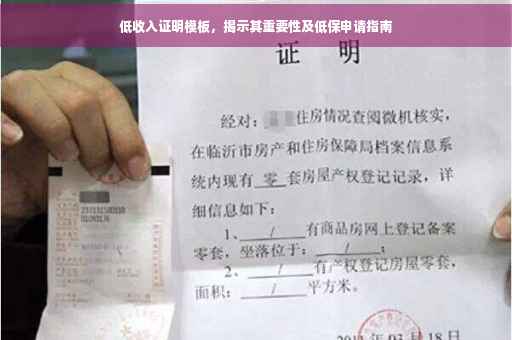 低收入证明模板，揭示其重要性及低保申请指南
证 明
经对: 住房情况查阅微机核实,
在临沂市房产和住房保障局档案信息系
统内现有 零 套房屋产权登记记录, 详
细信息如下:
1、 / 有商品房网上登记备案
零套, 坐落位于: / ;
2、 / 有产权登记房屋零套,
面积: / 平方米。
年 03 月 18 日